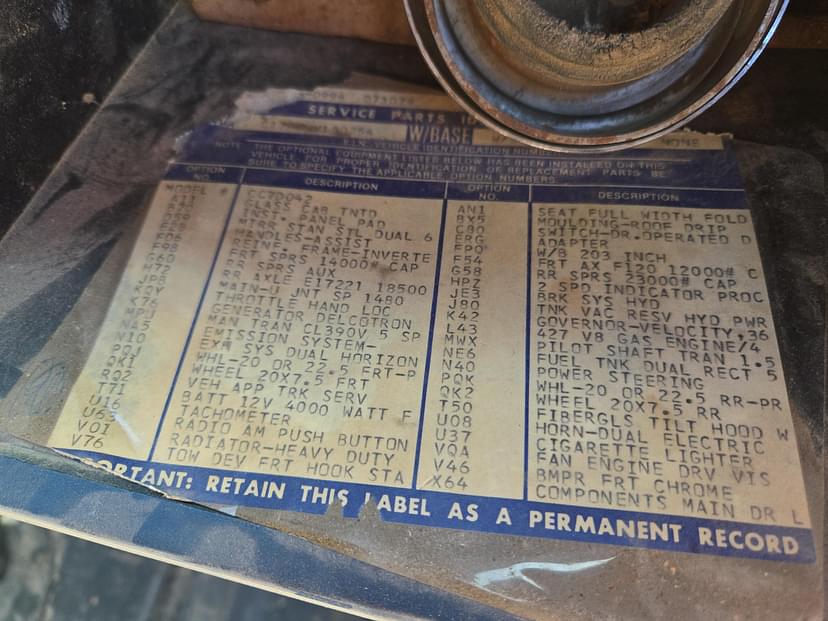 073079
SERVICE PARTS ID
W/BASE
NONE
VEHICLE IDENTIFICATION NUMBER
NOTE THE OPTIONAL EQUIPMENT LISTED BELOW HAS BEEN INSTALLED ON THIS
VEHICLE. FOR PROPER IDENTIFICATION OF REPLACEMENT PARTS BE
SURE TO SPECIFY THE APPLICABLE OPTION NUMBERS.
OPTION NO. DESCRIPTION
MODEL # CC7D042
A11 GLASS CAB TNTD
INST. PANEL PAD
D59 MIRR STAN STL DUAL 6
E28 HANDLES-ASSIST
REINF FRAME-INVERTE
F98 FRT SPRS 14000# CAP
G60 RR SPRS AUX
H72 RR AXLE E17221 18500
JP8 MAIN-U JNT SP 1480
KQY THROTTLE HAND LOC
K76 GENERATOR DELCOTRON
MPU MAN TRAN CL390V 5 SP
NA5 EMISSION SYSTEM-
N10 EXH SYS DUAL HORIZON
PQJ WHL-20 OR 22.5 FRT-P
QK1 WHEEL 20X7.5 FRT
RQ2 VEH APP TRK SERV
T71 BATT 12V 4000 WATT F
U16 TACHOMETER
U63 RADIO AM PUSH BUTTON
V01 RADIATOR-HEAVY DUTY
V76 TOW DEV FRT HOOK STA
OPTION NO. DESCRIPTION
AN1 SEAT FULL WIDTH FOLD
BX5 MOULDING-ROOF DRIP
C80 SWITCH-DR.OPERATED D
ERG ADAPTER
FPO W/B 203 INCH
F54 FRT AX F120 12000# C
G58 RR SPRS 23000# CAP
HPZ 2 SPD INDICATOR PROC
JE3 BRK SYS HYD
J80 TNK VAC RESV HYD PWR
K42 GOVERNOR-VELOCITY,36
L43 427 V8 GAS ENGINE/4
MWX PILOT SHAFT TRAN 1.5
NE6 FUEL TNK DUAL RECT 5
N40 POWER STEERING
PQK WHL-20 OR 22.5 RR-PR
QK2 WHEEL 20X7.5 RR
T50 FIBERGLS TILT HOOD W
U08 HORN-DUAL ELECTRIC
U37 CIGARETTE LIGHTER
VQA FAN ENGINE DRV VIS
V46 BMPR FRT CHROME
X64 COMPONENTS MAIN DR L
PORTANT: RETAIN THIS LABEL AS A PERMANENT RECORD